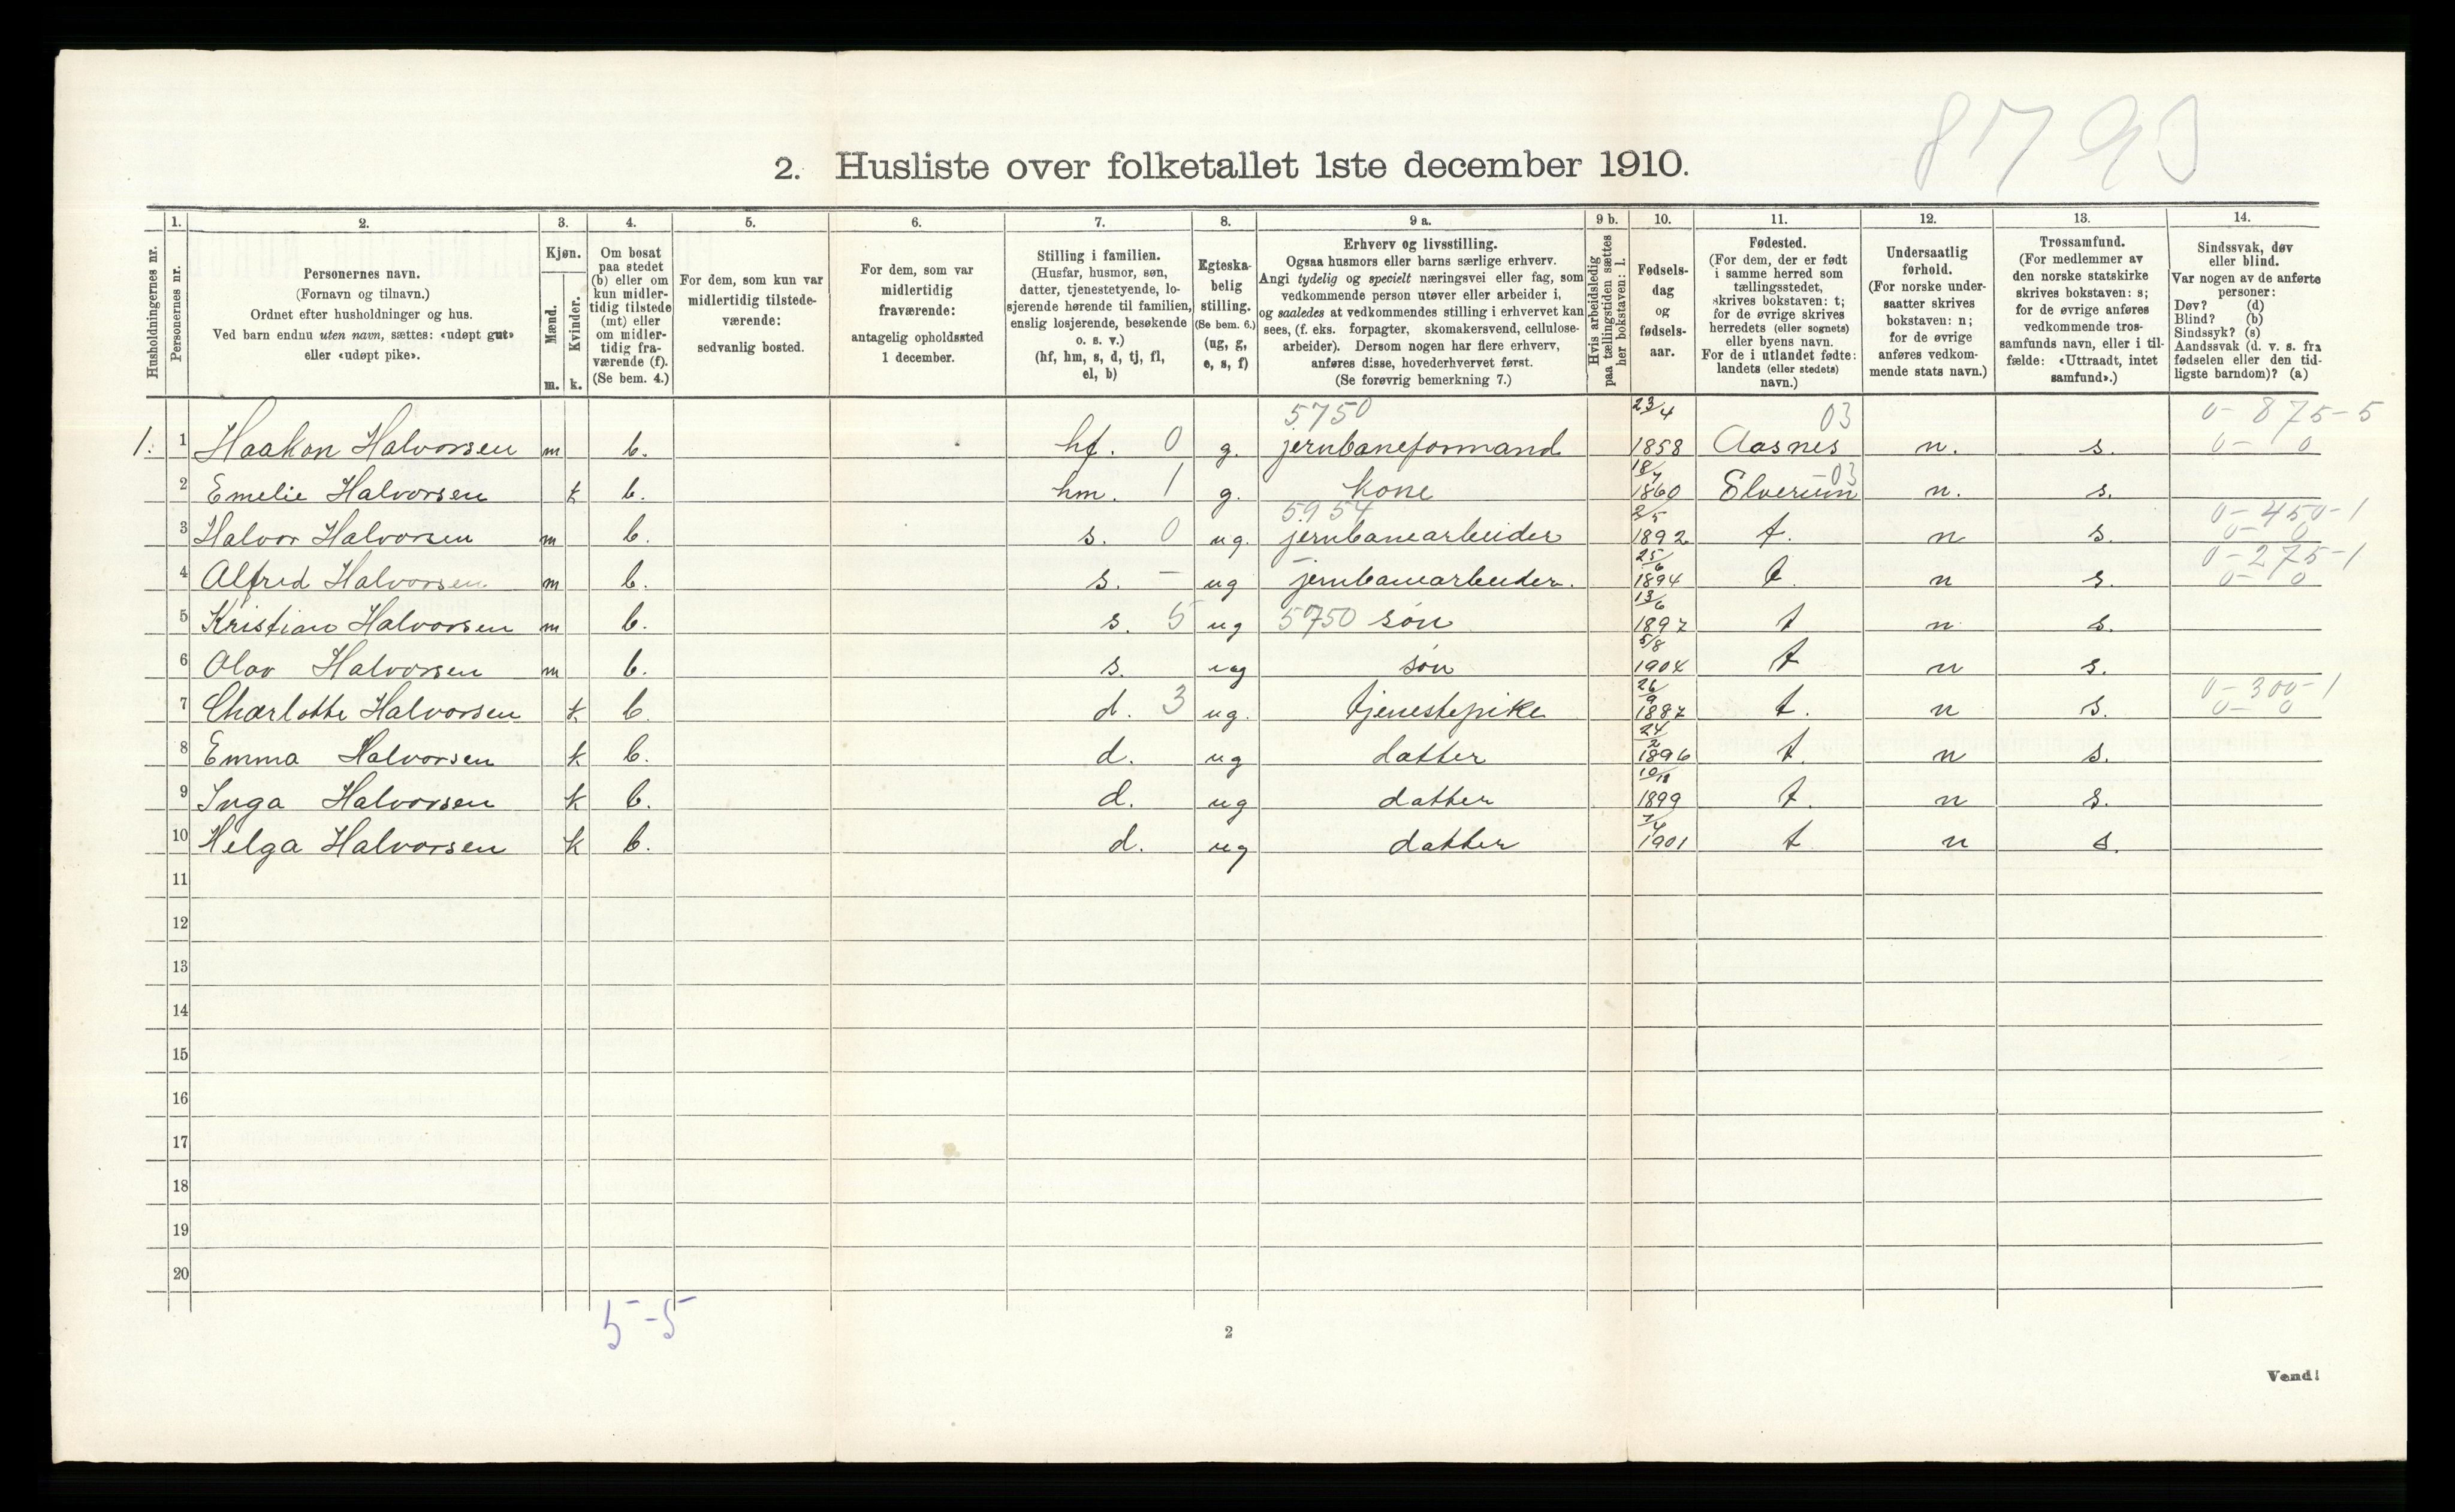 8793
2. Husliste over folketallet 1ste december 1910.
Husholdningernes nr.
1.
Personernes nr.
2.
Personernes navn.
(Fornavn og tilnavn.)
Ordnet efter husholdninger og hus.
Ved barn endnu uten navn, sættes: «udøpt gut»
eller «udøpt pike».
3.
Kjøn.
Mænd.
m.
Kvinder.
k.
4.
Om bosat
paa stedet
(b) eller om
kun midler-
tidig tilstede
(mt) eller
om midler-
tidig fra-
værende (f).
(Se bem. 4.)
5.
For dem, som kun var
midlertidig tilstede-
værende:
sedvanlig bosted.
6.
For dem, som var
midlertidig
fraværende:
antagelig opholdssted
1 december.
7.
Stilling i familien.
(Husfar, husmor, søn,
datter, tjenestetyende, lo-
sjerende hørende til familien,
enslig losjerende, besøkende
o. s. v.)
(hf, hm, s, d, tj, fl,
el, b)
8.
Egteska-
belig
stilling.
(Se bem. 6.)
(ug, g,
e, s, f)
9 a.
Erhverv og livsstilling.
Ogsaa husmors eller barns særlige erhverv.
Angi tydelig og specielt næringsvei eller fag, som
vedkommende person utøver eller arbeider i,
og saaledes at vedkommendes stilling i erhvervet kan
sees, (f. eks. forpagter, skomakersvend, cellulose-
arbeider). Dersom nogen har flere erhverv,
anføres disse, hovederhvervet først.
(Se forøvrig bemerkning 7.)
9 b.
Hvis arbeidsledig
paa tællingstiden sættes
her bokstaven: l.
10.
Fødsels-
dag
og
fødsels-
aar.
11.
Fødested.
(For dem, der er født
i samme herred som
tællingsstedet,
skrives bokstaven: t;
for de øvrige skrives
herredets (eller sognets)
eller byens navn.
For de i utlandet fødte:
landets (eller stedets)
navn.)
12.
Undersaatlig
forhold.
(For norske under-
saatter skrives
bokstaven: n;
for de øvrige
anføres vedkom-
mende stats navn.)
13.
Trossamfund.
(For medlemmer av
den norske statskirke
skrives bokstaven: s;
for de øvrige anføres
vedkommende tros-
samfunds navn, eller i til-
fælde: «Uttraadt, intet
samfund».)
14.
Sindssvak, døv
eller blind.
Var nogen av de anførte
personer:
Døv? (d)
Blind? (b)
Sindssyk? (s)
Aandssvak (d. v. s. fra
fødselen eller den tid-
ligste barndom)? (a)
5750 23/4 03 0-875-5
1. 1 Haakon Halvorsen m b. hf. 0 g. jernbaneformand 1858 Aasnes n. s. 0- 0
18/7 -03
2 Emelie Halvorsen k b. hm. 1 g. kone 1860 Elverum n. s.
5954 2/5 0-450-1
3 Halvor Halvorsen m b. s. 0 ug. jernbanearbeider 1892 t. n s. 0- 0
25/6 0-275-1
4 Alfred Halvorsen m b. s. - ug jernbanearbeider. 1894 t. n s. 0- 0
13/6
5 Kristian Halvorsen m b. s. 5 ug 5750 søn 1897 t n s.
5/8
6 Olav Halvorsen m b. s. ug søn 1904 t n s.
26/9 0-300-1
7 Charlotte Halvorsen k b d. 3 ug. tjenestepike 1887 t. n s. 0- 0
24/2
8 Emma Halvorsen k b. d. ug datter 1896 t. n s.
9 Inga Halvorsen k b. d. ug datter 1899 t. n s.
10 Helga Halvorsen k b. d. ug datter 1901 t n s.
11
12
13
14
15
16
17
18
19
20
5-5
2
Vend!